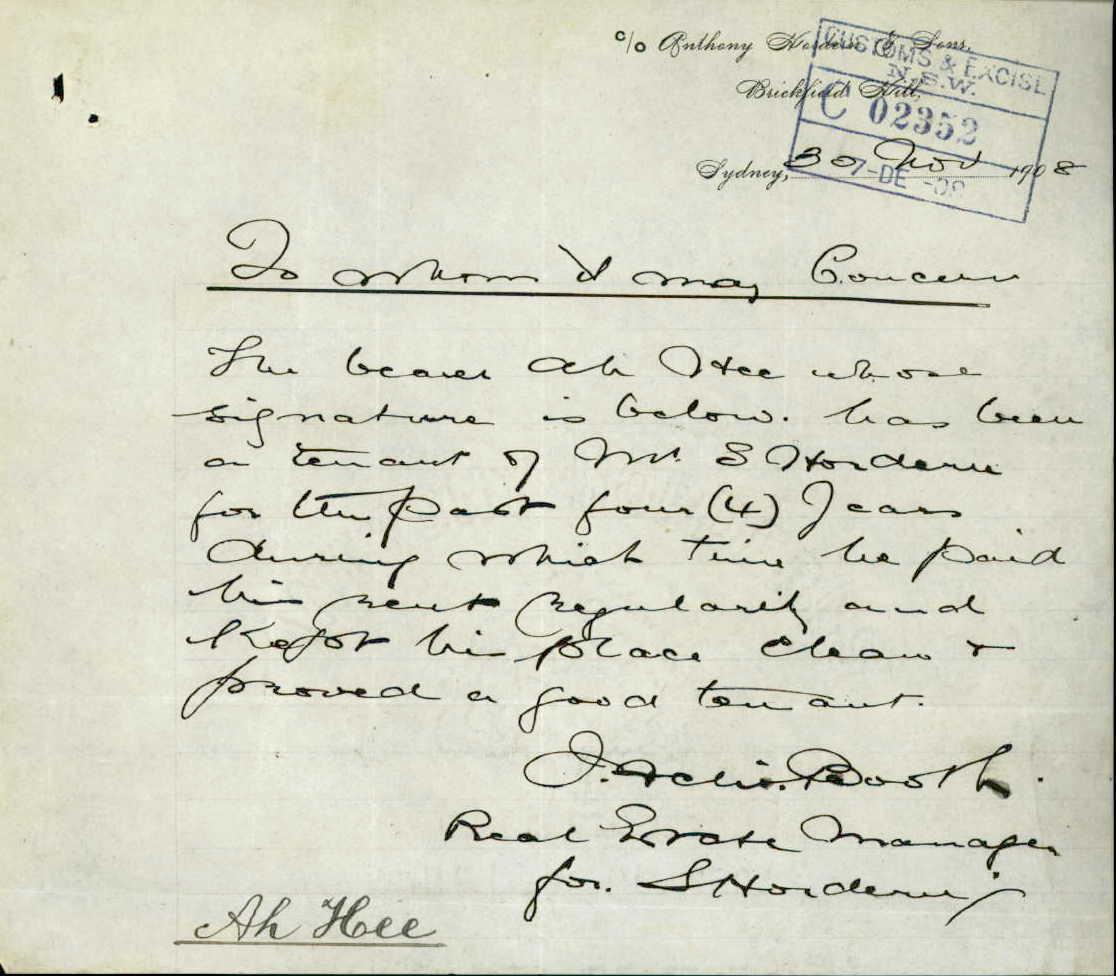 c/o Anthony Hordern & Sons,
Brickfield Hill,
Sydney, 30 Nov 1908
CUSTOMS & EXCISE
N.S.W.
C 02352
7-DE-08
To whom it may Concern
The bearer Ah Hee whose
signature is below. has been
a tenant of Mr. S Hordern
for the past four (4) Years
during which time he paid
his rent regularily and
kept his place clean &
proved a good tenant.
J. Booth.
Real Estate Manager
for. S Hordern
Ah Hee